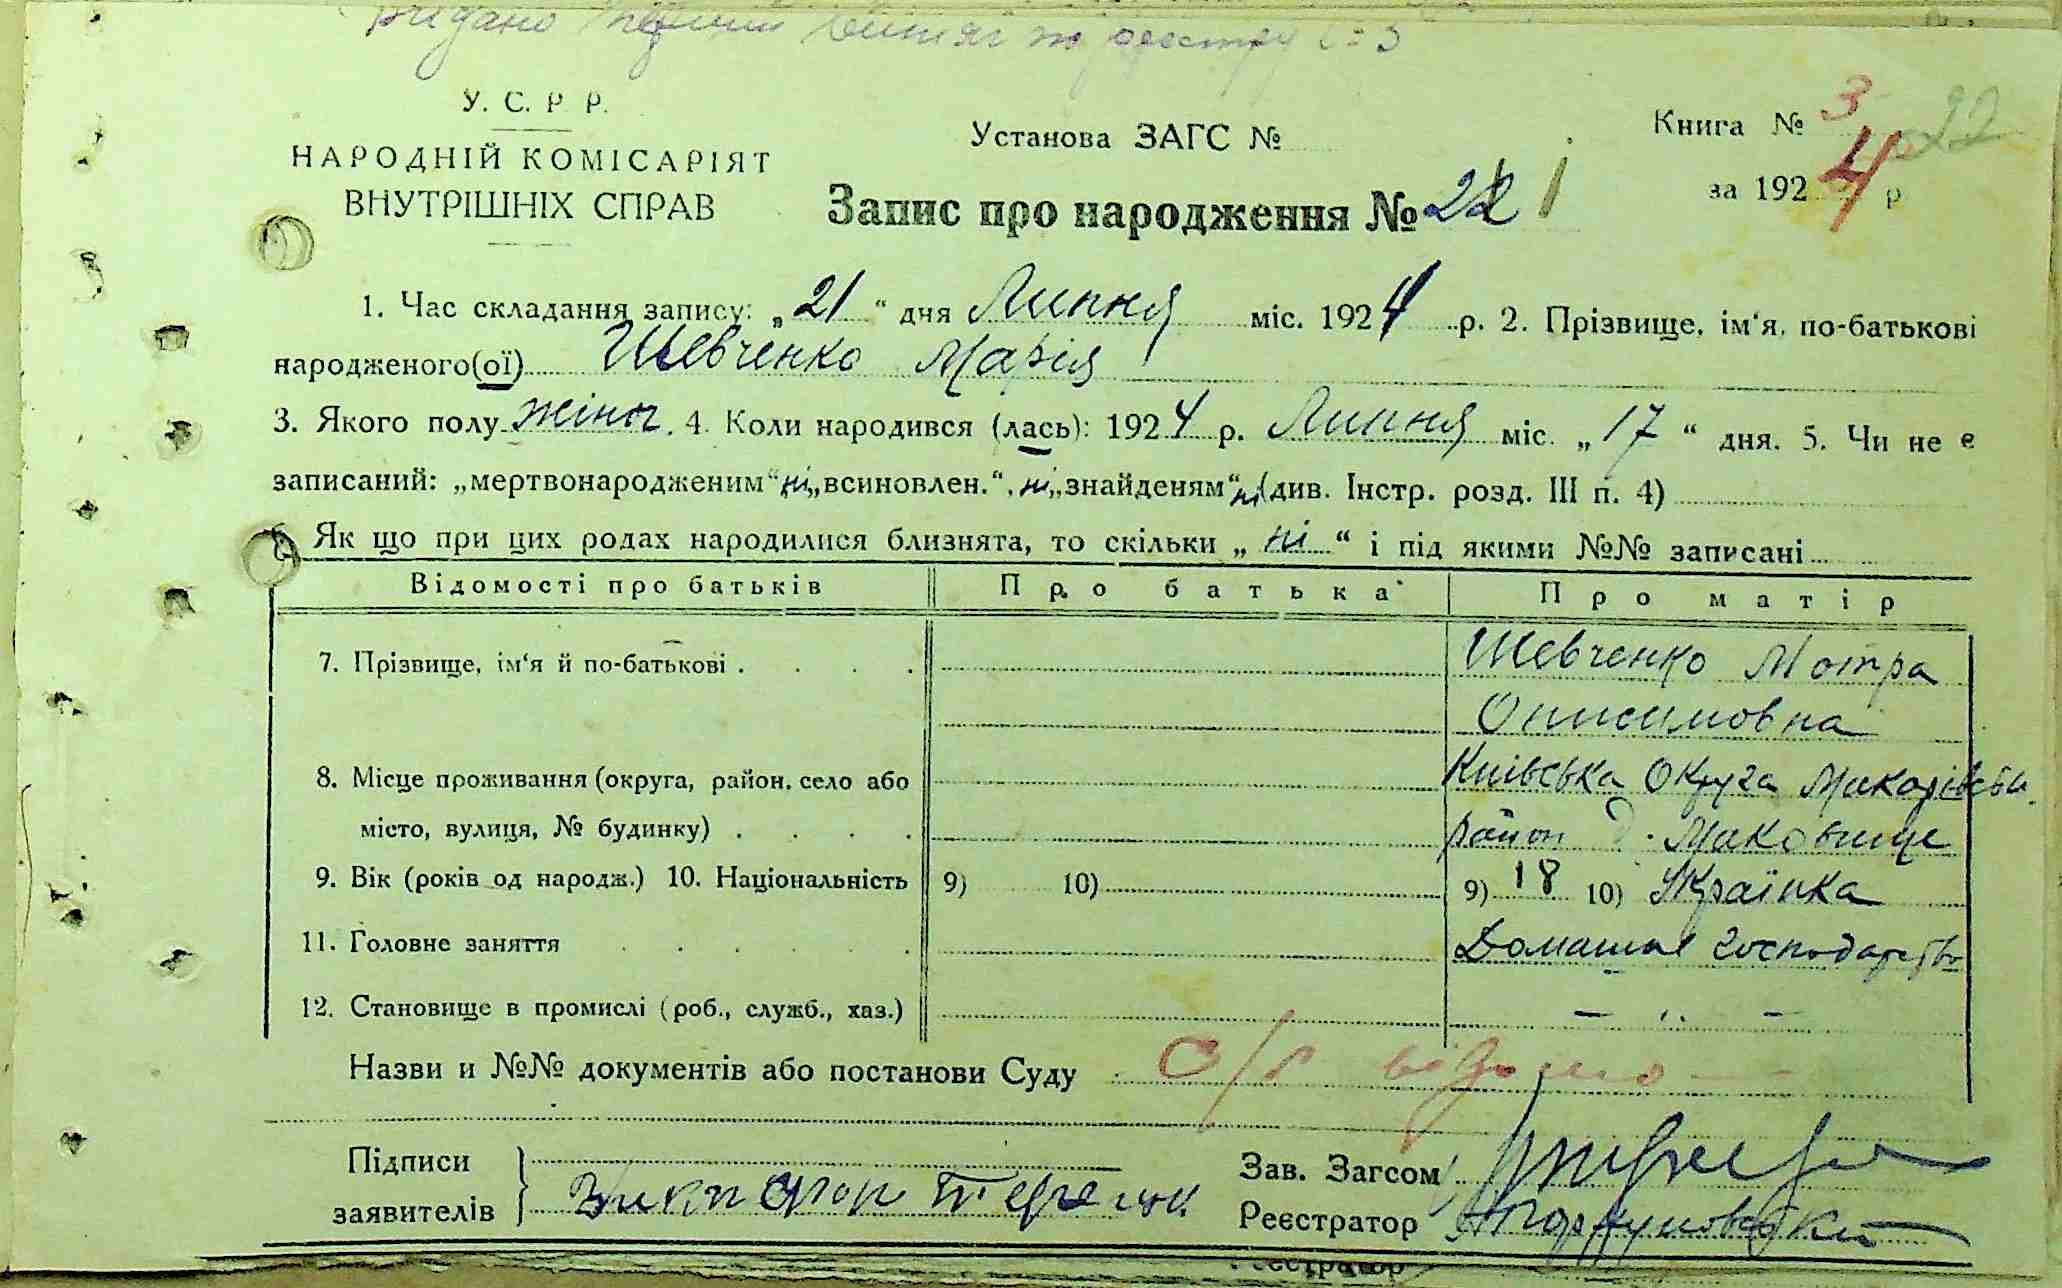 Видано
У. С. Р. Р.
НАРОДНІЙ КОМІСАРІЯТ
ВНУТРІШНІХ СПРАВ
Установа ЗАГС №
Книга № 3 22
за 1924 р
Запис про народження № 22 1
1. Час складання запису: „21“ дня Липня міс. 1924 р. 2. Прізвище, ім'я, по-батькові
народженого(ої) Шевченко Марія
3. Якого полу жіноч. 4. Коли народився (лась): 1924 р. Липня міс. „17“ дня. 5. Чи не є
записаний: „мертвонародженим“ ні „всиновлен.“, ні „знайденям“ ні (див. Інстр. розд. III п. 4)
Як що при цих родах народилися близнята, то скільки „ні“ і під якими №№ записані
Відомості про батьків Про батька Про матір
7. Прізвище, ім'я й по-батькові . . . . Шевченко Мотра
Онисимовна
8. Місце проживання (округа, район, село або Київська Округа Макарівськ.
місто, вулиця, № будинку) . . . . район Маковище
9. Вік (років од народж.) 10. Національність 9) 10) 9) 18 10) Українка
11. Головне заняття . . . . . Домашнє господарство
12. Становище в промислі (роб., служб., хаз.) — „ —
Назви и №№ документів або постанови Суду
Підписи
заявителів
Зав. Загсом
Реєстратор
Реєстратор